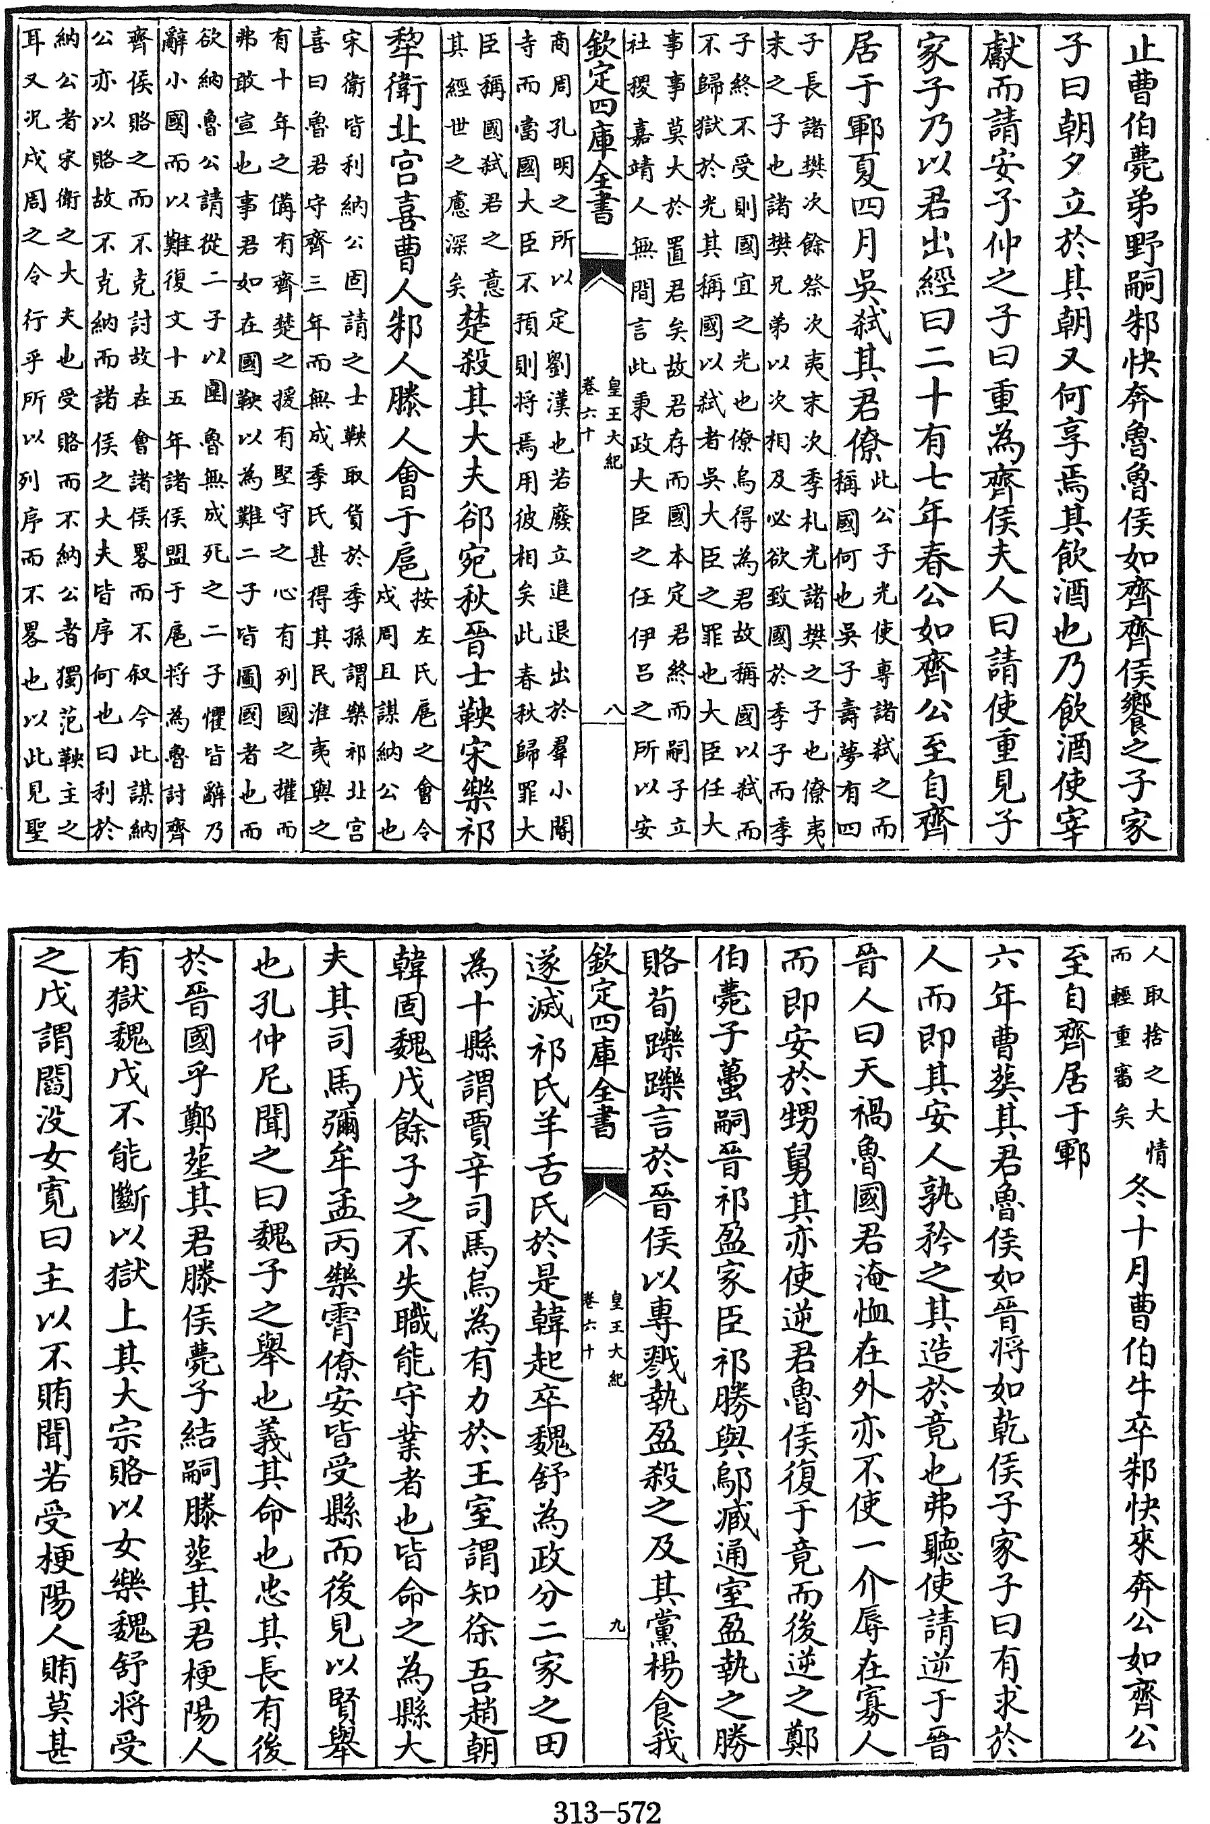 止曹伯薨弟野嗣邾快奔魯魯侯如齊齊侯饗之子家
子曰朝夕立於其朝又何享焉其飲酒也乃飲酒使宰
獻而請安子仲之子曰重為齊侯夫人曰請使重見子
家子乃以君出經曰二十有七年春公如齊公至自齊
居于鄆夏四月吳弑其君僚
此公子光使專諸弑之而
稱國何也吳子壽夢有四
子長諸樊次餘祭次夷末次季札光諸樊之子也僚夷
末之子也諸樊兄弟以次相及必欲致國於季子而季
子終不受則國宜之光也僚烏得為君故稱國以弑而
不歸獄於光其稱國以弑者吳大臣之罪也大臣任大
事事莫大於置君矣故君存而國本定君終而嗣子立
社稷嘉靖人無間言此秉政大臣之任伊呂之所以安
欽定四庫全書
皇王大紀
卷六十
八
商周孔明之所以定劉漢也若廢立進退出於羣小閽
寺而當國大臣不預則將焉用彼相矣此春秋歸罪大
臣稱國弑君之意
其經世之慮深矣
楚殺其大夫郤宛秋晉士鞅宋樂祁
犂衛北宮喜曹人邾人滕人會于扈
按左氏扈之會令
戍周且謀納公也
宋衛皆利納公固請之士鞅取貨於季孫謂樂祁北宮
喜曰魯君守齊三年而無成季氏甚得其民淮夷與之
有十年之備有齊楚之援有堅守之心有列國之權而
弗敢宣也事君如在國鞅以為難二子皆圖國者也而
欲納魯公請從二子以圍魯無成死之二子懼皆辭乃
辭小國而以難復文十五年諸侯盟于扈將為魯討齊
齊侯賂之而不克討故在會諸侯畧而不叙今此謀納
公亦以賂故不克納而諸侯之大夫皆序何也曰利於
納公者宋衛之大夫也受賂而不納公者獨范鞅主之
耳又況戍周之令行乎所以列序而不畧也以此見聖
人取捨之大情
而輕重審矣
冬十月曹伯午卒邾快來奔公如齊公
至自齊居于鄆
六年曹葬其君魯侯如晉將如乾侯子家子曰有求於
人而即其安人孰矜之其造於竟也弗聽使請逆于晉
晉人曰天禍魯國君淹恤在外亦不使一介辱在寡人
而即安於甥舅其亦使逆君魯侯復于竟而後逆之鄭
伯薨子蠆嗣晉祁盈家臣祁勝與鄔臧通室盈執之勝
賂荀躒躒言於晉侯以專戮執盈殺之及其黨楊食我
欽定四庫全書
皇王大紀
卷六十
九
遂滅祁氏羊舌氏於是韓起卒魏舒為政分二家之田
為十縣謂賈辛司馬烏為有力於王室謂知徐吾趙朝
韓固魏戊餘子之不失職能守業者也皆命之為縣大
夫其司馬彌牟孟丙樂霄僚安皆受縣而後見以賢舉
也孔仲尼聞之曰魏子之舉也義其命也忠其長有後
於晉國乎鄭塟其君滕侯薨子結嗣滕塟其君梗陽人
有獄魏戊不能斷以獄上其大宗賂以女樂魏舒將受
之戊謂閻没女寛曰主以不賄聞若受梗陽人賄莫甚
313-572